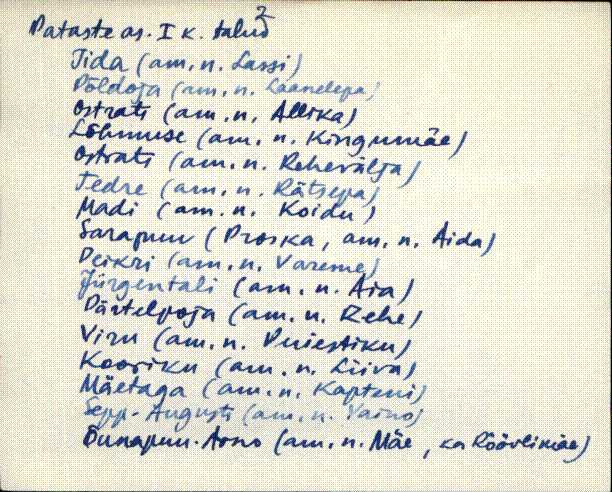 Pataste as. I k. talud 2
Tida (am. n. Lassi)
Põldoja (am. n. Laanelepa)
Ostrati (am. n. Allika)
Lõhmuse (am. n. Kingumäe)
Ostrati (am. n. Rehevälja)
Tedre (am. n. Rätsepa)
Madi (am. n. Koidu)
Sarapuu (Proska, am. n. Aida)
Peikri (am. n. Vareme)
Jürgentali (am. n. Aia)
Pärtelpoja (am. n. Rehe)
Viru (am. n. Puiestiku)
Kooriku (am. n. Liiva)
Mäetaga (am. n. Kapteni)
Sepp-Augusti (am. n. Vaino)
Õunapuu-Arno (am. n. Mäe, ka Röövlimäe)